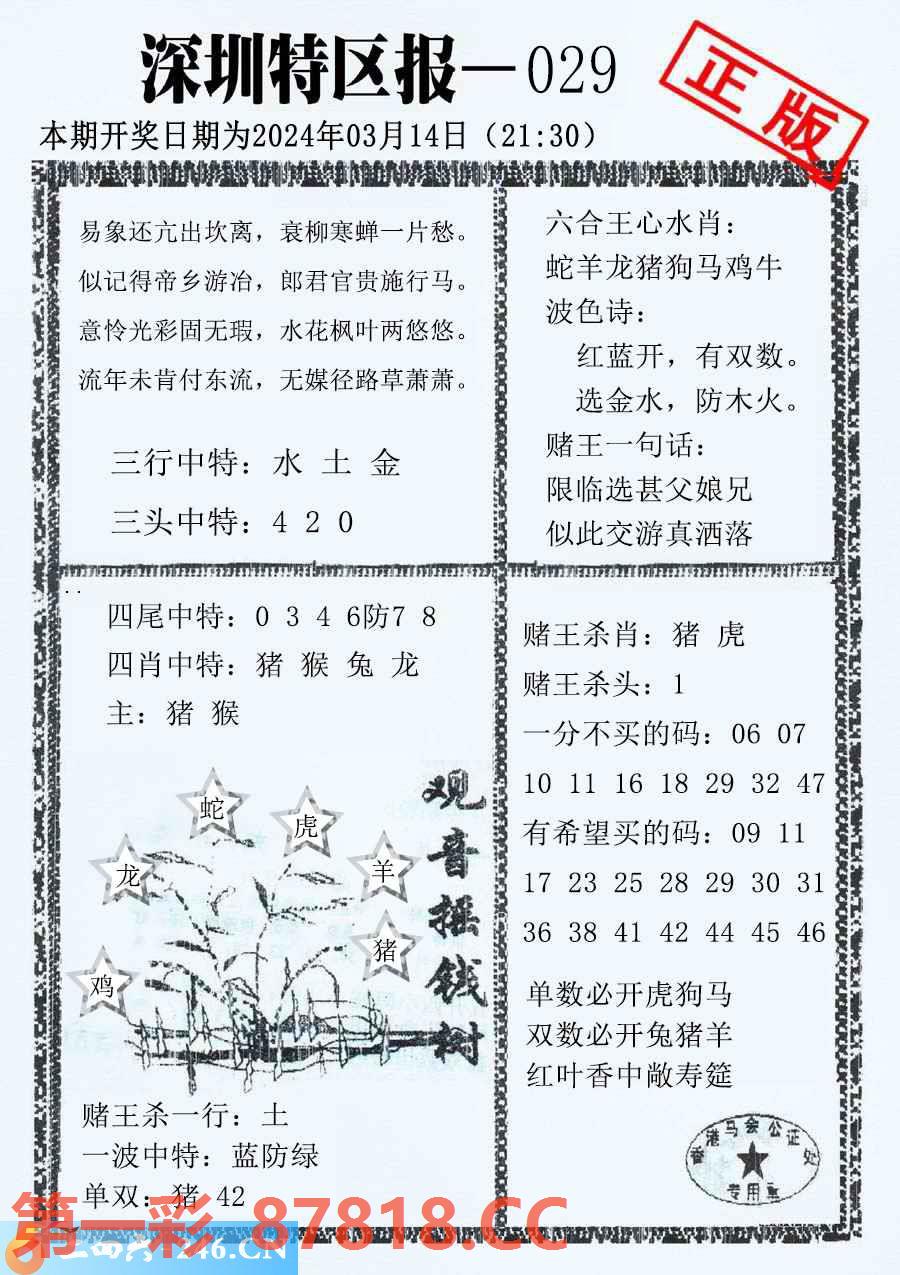 深圳特区报—029
正版
本期开奖日期为2024年03月14日（21:30）
易象还亢出坎离，衰柳寒蝉一片愁。
似记得帝乡游冶，郎君官贵施行马。
意怜光彩固无瑕，水花枫叶两悠悠。
流年未肯付东流，无媒径路草萧萧。
三行中特：水 土 金
三头中特：4 2 0
六合王心水肖：
蛇羊龙猪狗马鸡牛
波色诗：
红蓝开，有双数。
选金水，防木火。
赌王一句话：
限临选甚父娘兄
似此交游真洒落
四尾中特：0 3 4 6防7 8
四肖中特：猪 猴 兔 龙
主：猪 猴
观音摇钱树
蛇
虎
龙
羊
猪
鸡
赌王杀一行：土
一波中特：蓝防绿
单双：猪 42
赌王杀肖：猪 虎
赌王杀头：1
一分不买的码：06 07
10 11 16 18 29 32 47
有希望买的码：09 11
17 23 25 28 29 30 31
36 38 41 42 44 45 46
单数必开虎狗马
双数必开兔猪羊
红叶香中敞寿筵
香港马会公证处
专用章
第一彩 87818.CC
246.CN